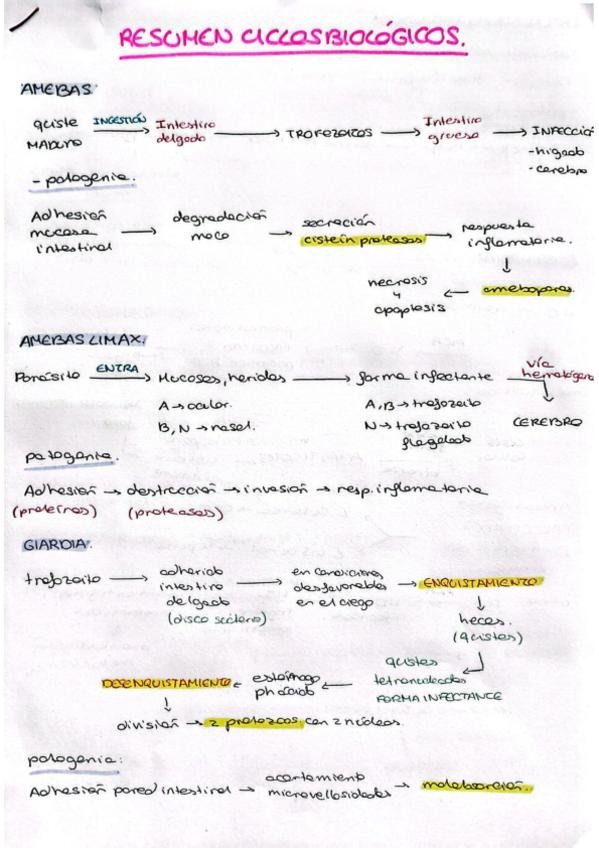 RESUMEN CICLOS BIOLÓGICOS.
AMEBAS:
quiste MADURO INGESTIÓN → Intestino delgado → TROFOZOITOS → Intestino grueso → INFECCIÓN
- hígado
- cerebro
- patogenia.
Adhesión mucosa intestinal → degradación moco → secreción cistein proteasas → respuesta inflamatoria.
↓
necrosis y apoptosis ← ameboporos
AMEBAS LIMAX.
Parásito ENTRA → Mucosas, heridas → forma infectante vía hematógena
A → ocular. A,B → trofozoito CEREBRO
B, N → nasal. N → trofozoito flagelado
patogenia.
Adhesión → destrucción → invasión → resp. inflamatoria
(proteínas) (proteasas)
GIARDIA.
trofozoito → adherido intestino delgado (disco suctorio) → en condiciones desfavorables en el ciego → ENQUISTAMIENTO
↓
heces. (quistes)
DESENQUISTAMIENTO ← estómago pH ácido ← quistes tetranucleados FORMA INFECTANTE
↓
división → 2 protozoos con 2 núcleos.
patogenia:
Adhesión pared intestinal → acortamiento microvellosidades → malabsorción.